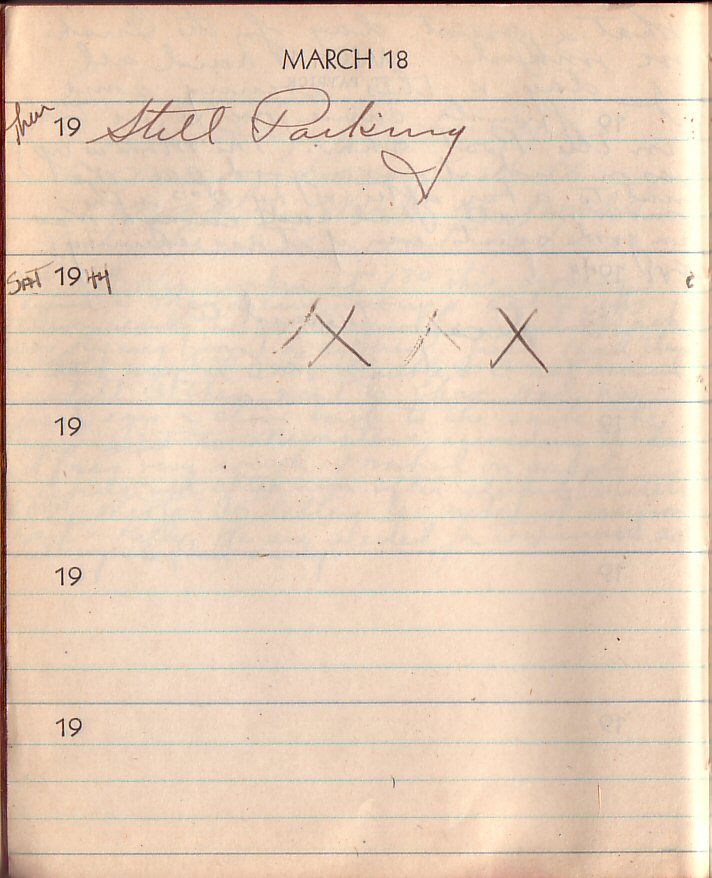 MARCH 18
Thur 19 Still Parking
SAT 1944
X X X X
19
19
19